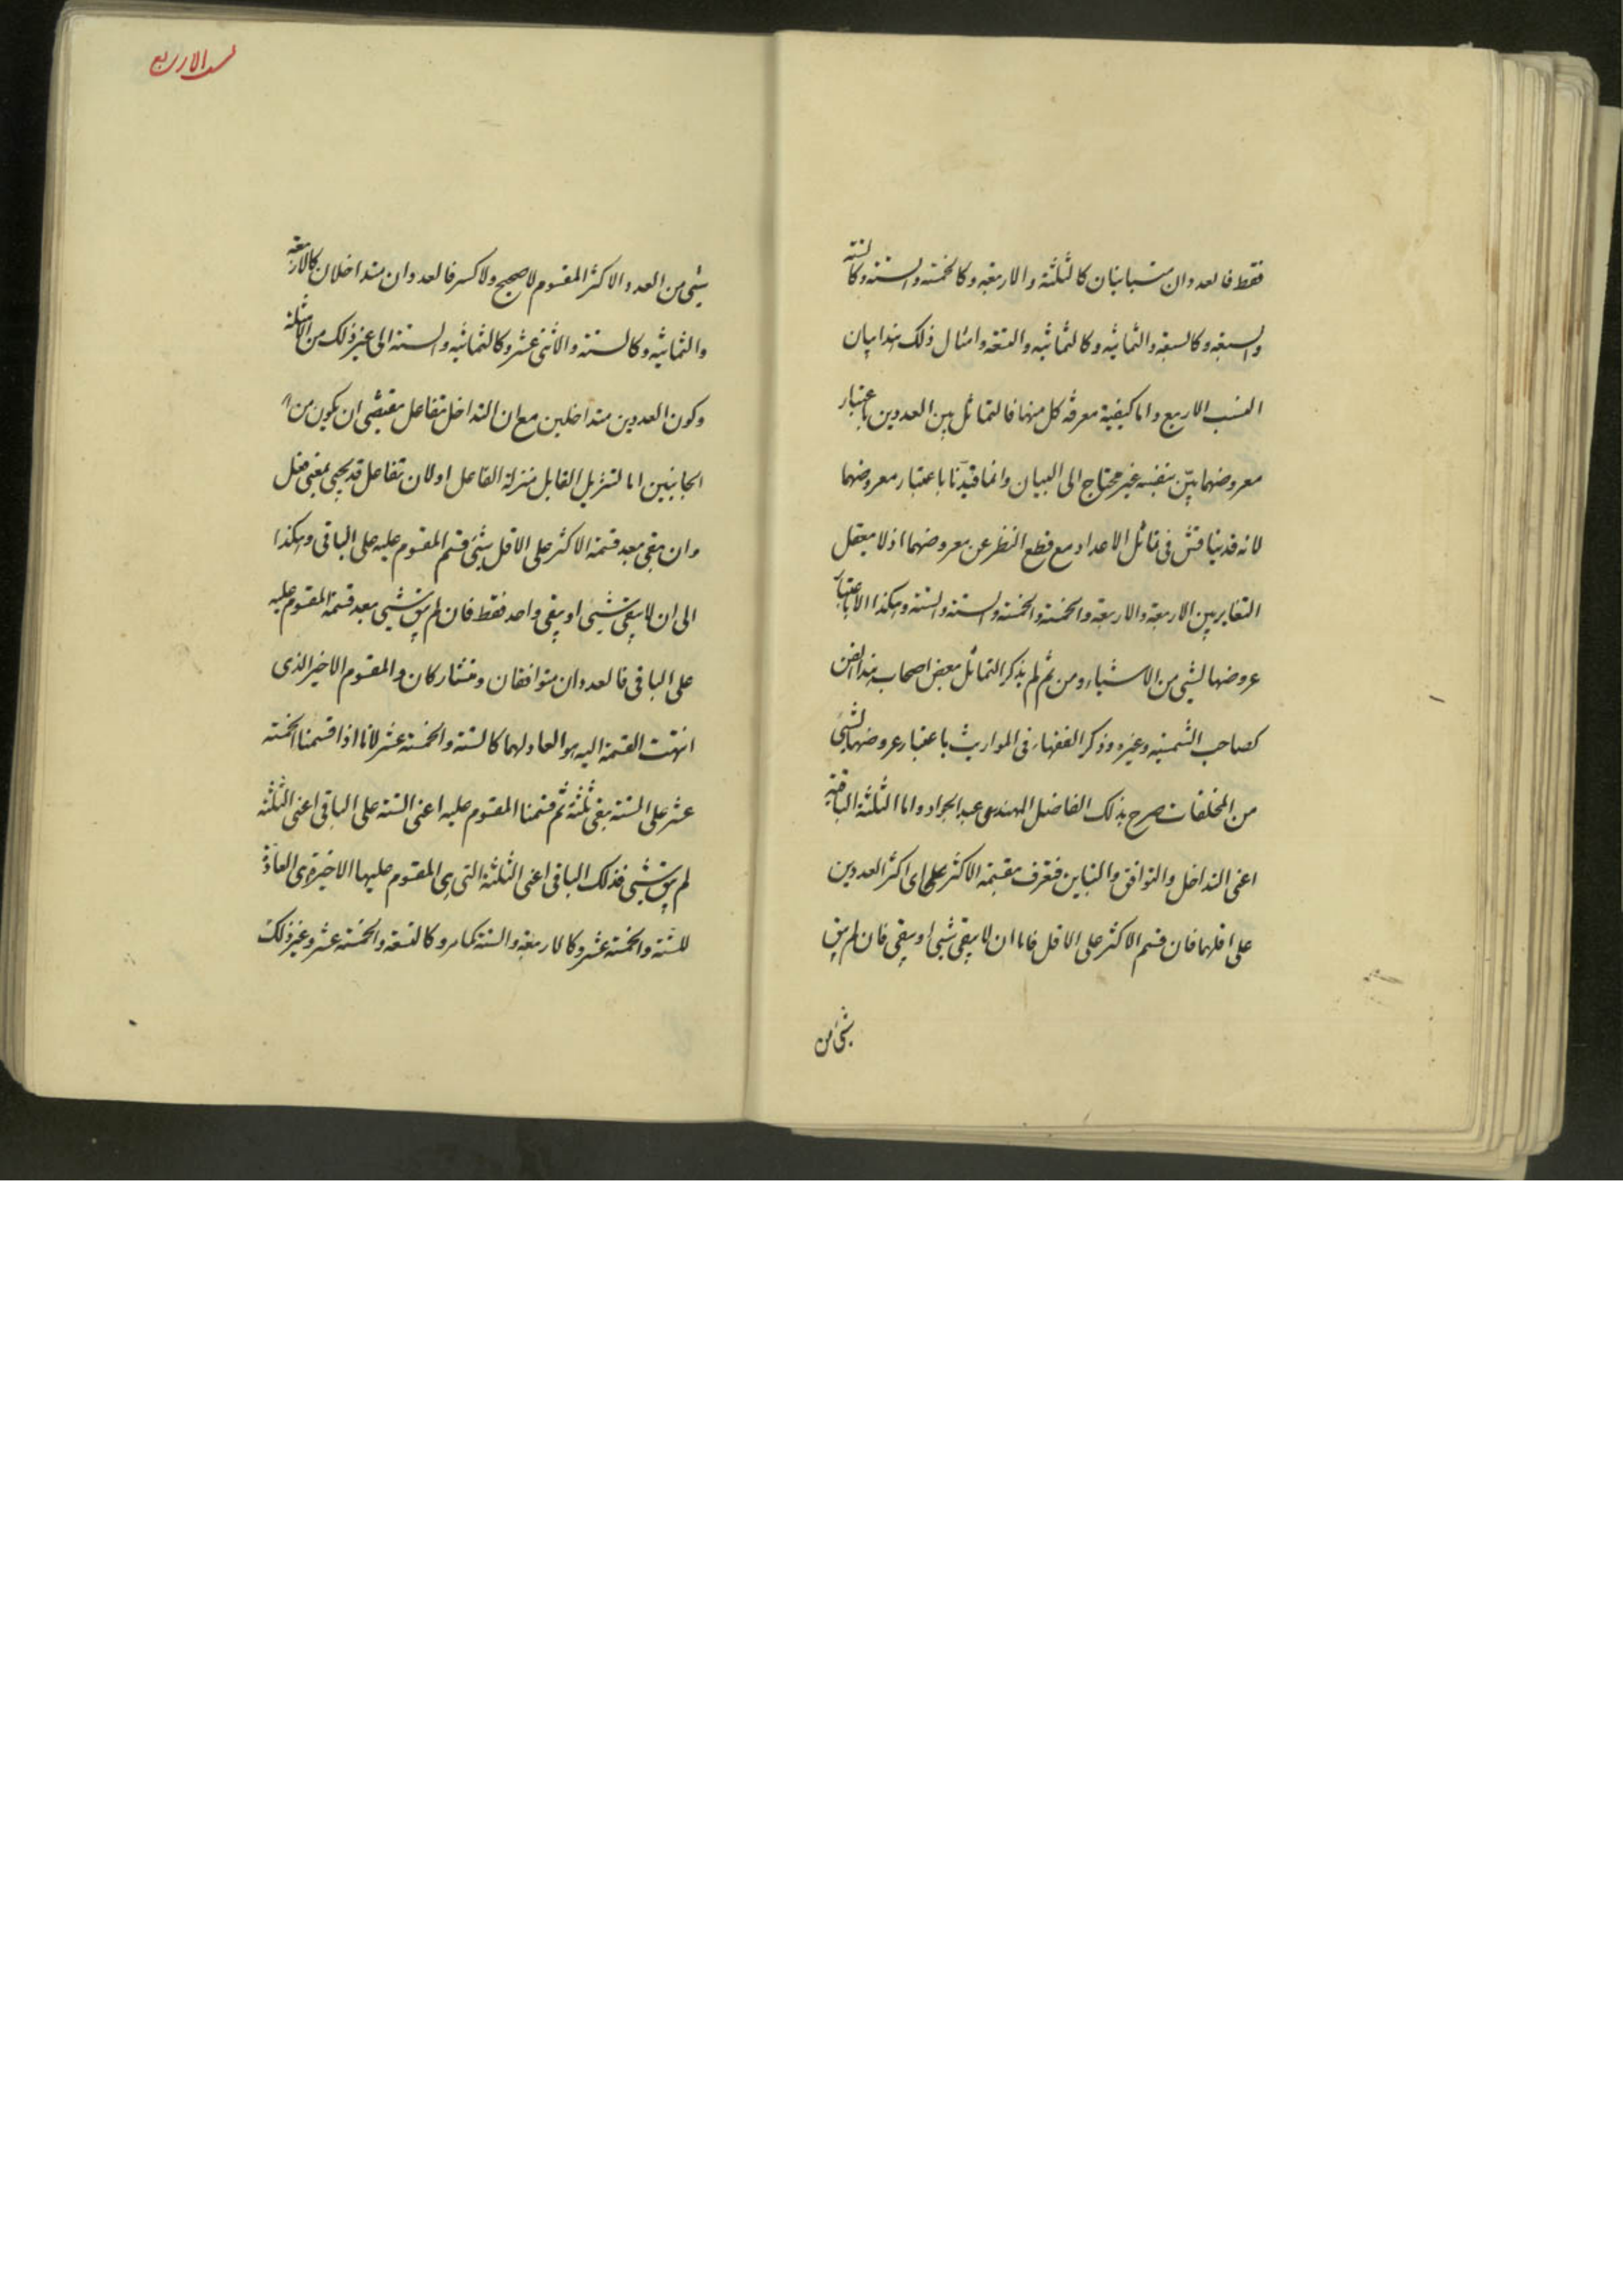 فقط فالعددان متباينان كالثلثة والاربعة وكالخمسة والستة وكالستة
والسبعة وكالسبعة والثمانية وكالثمانية والتسعة وامثال ذلك هذا بيان
النسب الاربع واما كيفية معرفة كل منها فالتماثل بين العددين باعتبار
معروضهما بيّن بنفسه غير محتاج الى البيان وانما قيدّنا باعتبار معروضهما
لانه قد يناقش فى تماثل الاعداد مع قطع النظر عن معروضهما اذ لا يعقل
التغاير بين الاربعة والاربعة والخمسة والخمسة والستة والستة وهكذا الا باعتبار
عروضها لشئ من الاشياء ومن ثم لم يذكر التماثل بعض اصحاب هذا الفن
كصاحب الشمسيه وغيره وذكر الفقهاء فى المواريث باعتبار عروضها لشئ
من المخلفات صرح بذلك الفاضل المهندس عبد الجواد واما الثلثة الباقية
اعنى التداخل والتوافق والتباين فتعرف بقسمة الاكثر على اى اكثر العددين
على اقلهما فان قسم الاكثر على الاقل فاما ان لا يبقى شئ او يبقى فان لم يبق
شئ من
لنسب الاربع
شئ من العدد الاكثر المقسوم لا صحيح ولا كسر فالعددان متداخلان كالاربعة
والثمانية وكالستة والاثنى عشر وكالثمانية والستة الى غير ذلك من الامثلة
وكون العددين متداخلين مع ان التداخل تفاعل مقتضى ان يكون من
الجانبين اما لتنزيل القابل منزلة الفاعل او لان تفاعل قد يجئ بمعنى فعل
وان بقى بعد قسمة الاكثر على الاقل شئ قسم المقسوم عليه على الباقى وهكذا
الى ان لا يبقى شئ او يبقى واحد فقط فان لم يبق شئ بعد قسمة المقسوم عليه
على الباقى فالعددان متوافقان ومتشاركان والمقسوم الاخير الذى
انتهت القسمة اليه هو العاد لهما كالستة والخمسة عشر لانا اذا قسمنا الخمسة
عشر على الستة بقى ثلثة ثم قسمنا المقسوم عليه اعنى الستة على الباقى اعنى الثلثة
لم يبق شئ فذلك الباقى اعنى الثلثة التى هى المقسوم عليها الاخيرة هى العادّة
للستة والخمسة عشر وكالاربعة والستة كما مر وكالتسعة والخمسة عشر وغير ذلك